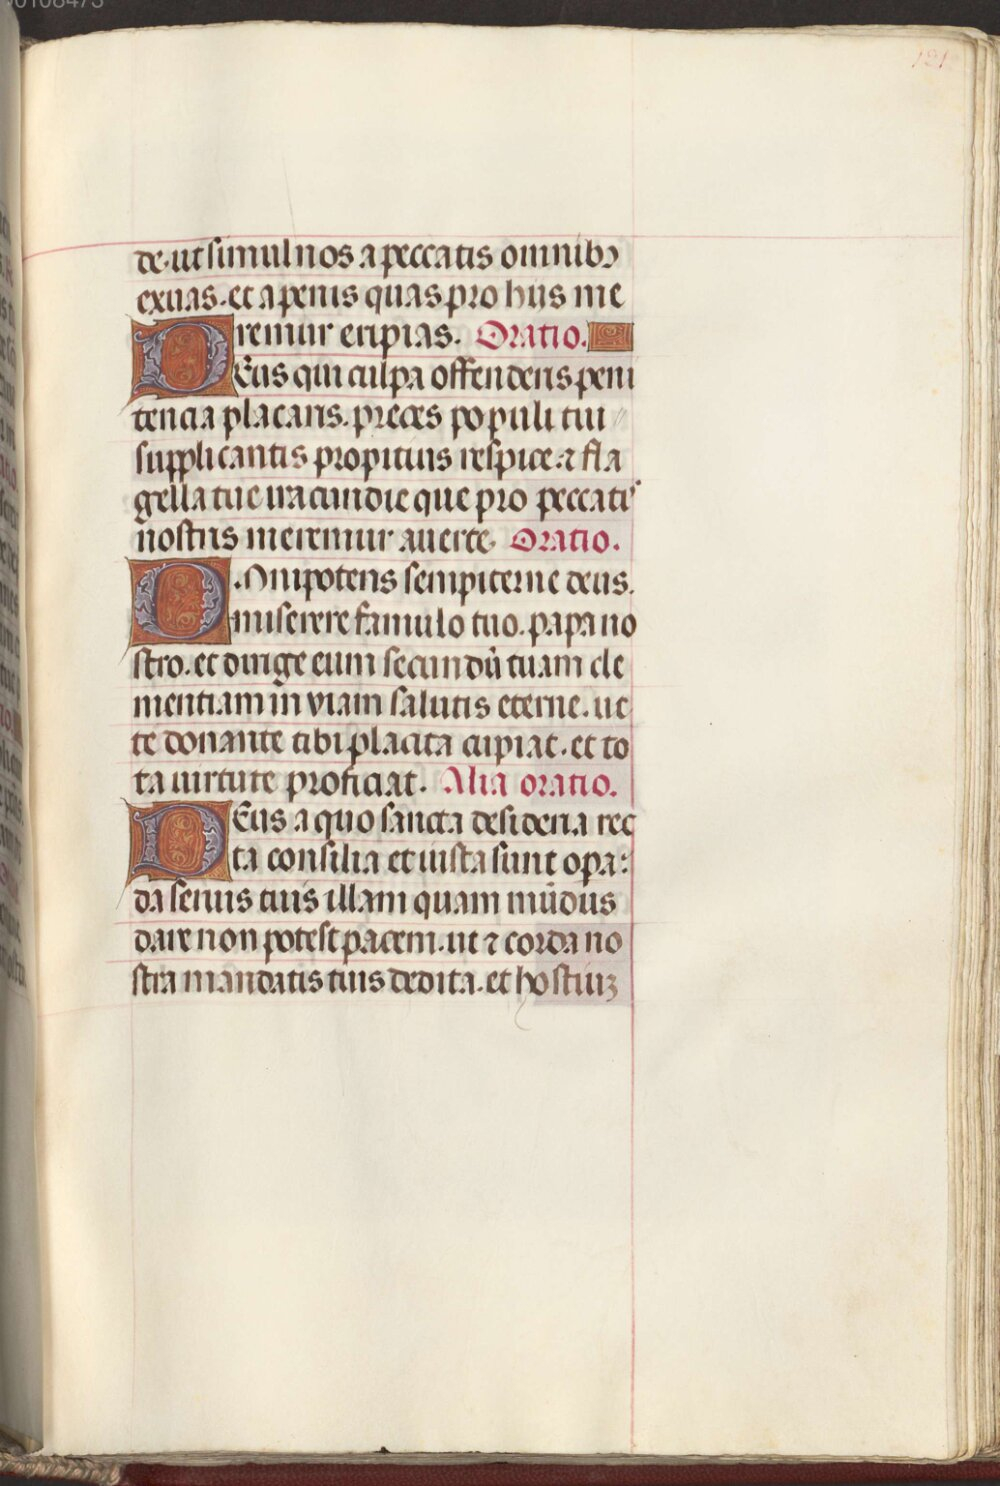 00108473
121
de. ut simul nos a peccatis omnibꝫ
exuas. et a penis quas pro hiis me
remur eripias. Oratio.
DEus qui culpa offenderis peni
tencia placaris. preces populi tui
supplicantis propitius respice. ⁊ fla
gella tue iracundie que pro peccatis
nostris meremur auerte. Oratio.
Omnipotens sempiterne deus.
miserere famulo tuo. papa no
stro. et dirige eum secundū tuam cle
mentiam in viam salutis eterne. ut
te donante tibi placita cupiat. et to
ta uirtute proficiat. Alia oratio.
DEus a quo sancta desideria rec
ta consilia et iusta sunt opa:
da seruis tuis illam quam mūdus
dare non potest pacem. ut ⁊ corda no
stra mandatis tuis dedita. et hostiuꝫ